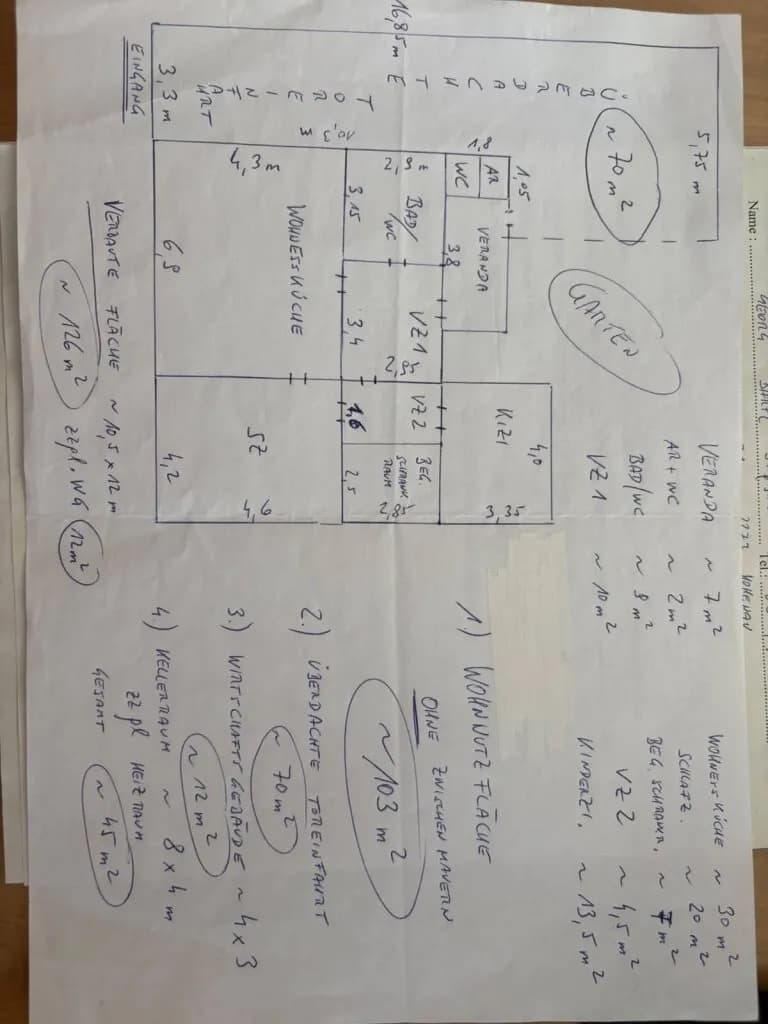 Name :
GEORG
Tel.:
HOHENAU
16,85 m
ÜBERDACHTE
TOREINFAHRT
5,75 m
~ 70 m²
3,3 m
EINGANG
10,3 m
4,3 m
WOHNESSKÜCHE
6,9
BAD/
WC
3,15
1,8
WC
AR
1,05
VERANDA
3,8
GARTEN
VZ1
3,4
VZ2
1,6
BEG.
SCHRANK
RAUM
2,5
2,85
KIZI
4,0
3,35
SZ
4,6
4,2
VERBAUTE FLÄCHE ~ 10,5 x 12 m
~ 126 m² zzgl. WG 12 m²
VERANDA ~ 7 m²
AR + WC ~ 2 m²
BAD/WC ~ 9 m²
VZ1 ~ 10 m²
WOHNESSKÜCHE ~ 30 m²
SCHLAFZ. ~ 20 m²
BEG. SCHRANKR. ~ 7 m²
VZ2 ~ 4,5 m²
KINDERZI. ~ 13,5 m²
1.) WOHNNUTZFLÄCHE
OHNE ZWISCHENMAUERN
~ 103 m²
2.) ÜBERDACHTE TOREINFAHRT
~ 70 m²
3.) WIRTSCHAFTSGEBÄUDE ~ 4 x 3
~ 12 m²
4.) KELLERRAUM ~ 8 x 4 m
zzgl HEIZRAUM
GESAMT ~ 45 m²